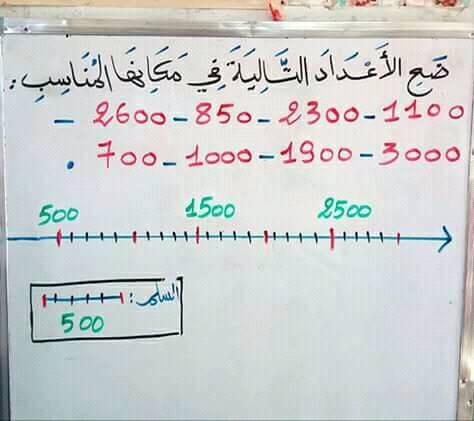 ضَعِ الأَعْدَادَ التَّالِيَةَ فِي مَكَانِهَا المُنَاسِبِ:
1100 - 2300 - 850 - 2600 -
3000 - 1900 - 1000 - 700 .
500 1500 2500
السلم:
500